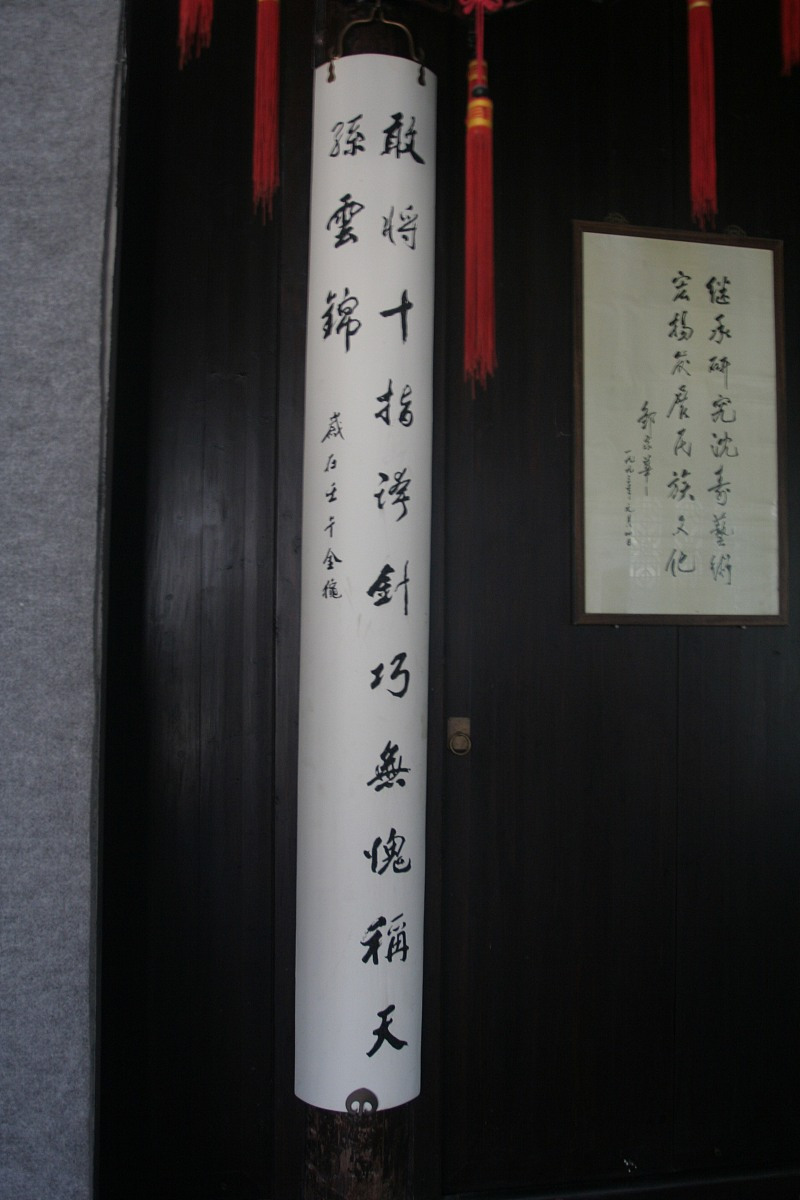 敢將十指誇針巧無愧稱天
孫雲錦
歲在壬午金秋
继承研究沈寿藝術
宏揚发展民族文化